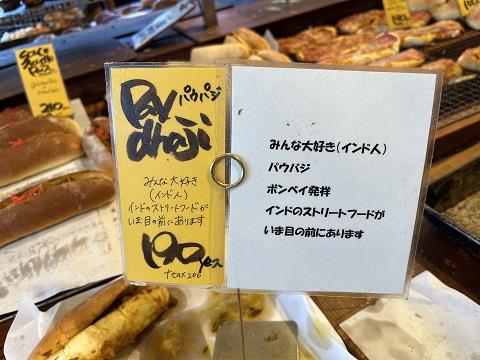 Pav
パウバジ
dhaji
みんな大好き
(インド人)
インドのストリートフードが
いま目の前にあります
190yes
+tax206
みんな大好き(インド人)
パウバジ
ボンベイ発祥
インドのストリートフードが
いま目の前にあります